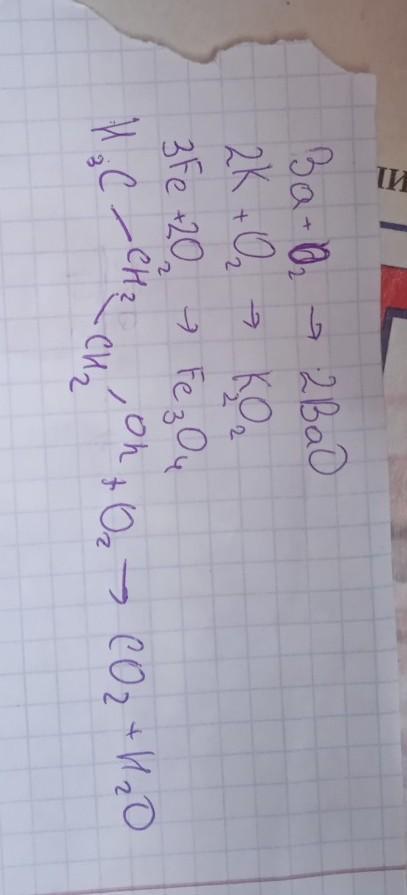 Ba + O₂ → 2BaO
2K + O₂ → K₂O₂
3Fe + 2O₂ → Fe₃O₄
H₃C — CH₂ \ CH₂ / Oh + O₂ → CO₂ + H₂O